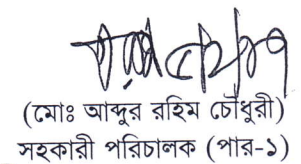 (মোঃ আব্দুর রহিম চৌধুরী)
সহকারী পরিচালক (পার-১)